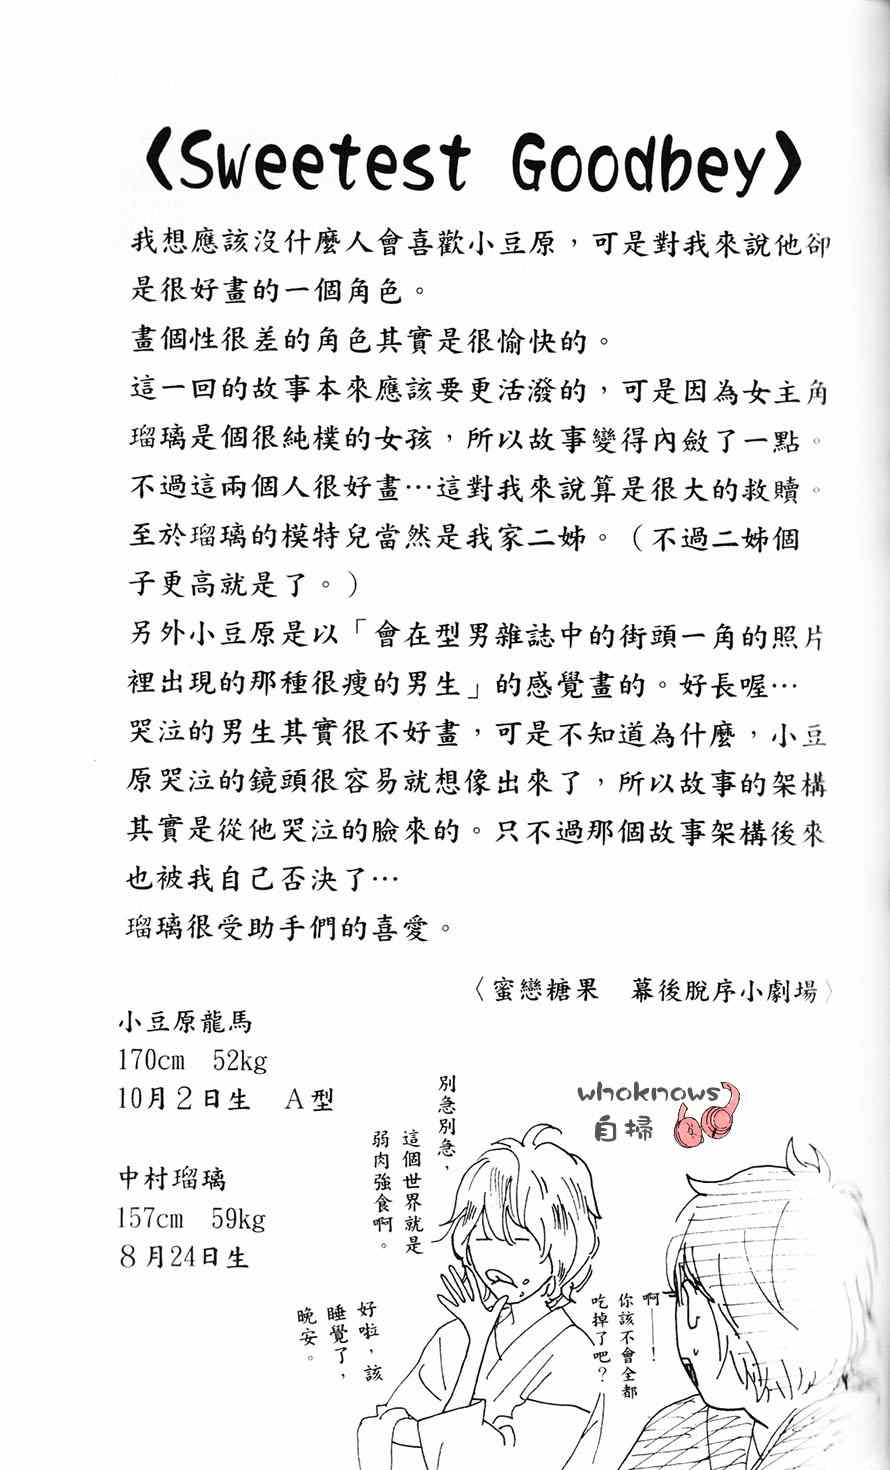 〈Sweetest Goodbey〉
我想應該沒什麼人會喜歡小豆原，可是對我來說他卻
是很好畫的一個角色。
畫個性很差的角色其實是很愉快的。
這一回的故事本來應該要更活潑的，可是因為女主角
瑠璃是個很純樸的女孩，所以故事變得內斂了一點。
不過這兩個人很好畫⋯這對我來說算是很大的救贖。
至於瑠璃的模特兒當然是我家二姊。（不過二姊個
子更高就是了。）
另外小豆原是以「會在型男雜誌中的街頭一角的照片
裡出現的那種很瘦的男生」的感覺畫的。好長喔⋯
哭泣的男生其實很不好畫，可是不知道為什麼，小豆
原哭泣的鏡頭很容易就想像出來了，所以故事的架構
其實是從他哭泣的臉來的。只不過那個故事架構後來
也被我自己否決了⋯
瑠璃很受助手們的喜愛。
〈蜜戀糖果　幕後脫序小劇場〉
小豆原龍馬
170cm　52kg
10月２日生　Ａ型
中村瑠璃
157cm　59kg
８月24日生
whoknows
自掃
啊——！
你該不會全都
吃掉了吧？
別急別急，
這個世界就是
弱肉強食啊。
好啦，該
睡覺了，
晚安。